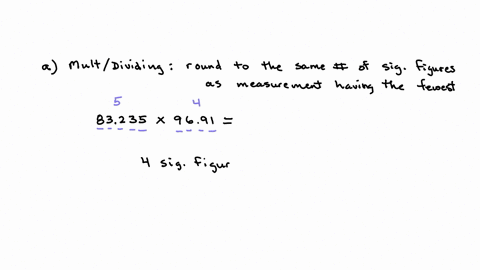 a) Mult/Dividing: round to the same # of sig. figures
as measurement having the fewest
5 4
83.235 x 96.91 =
4 sig. figur